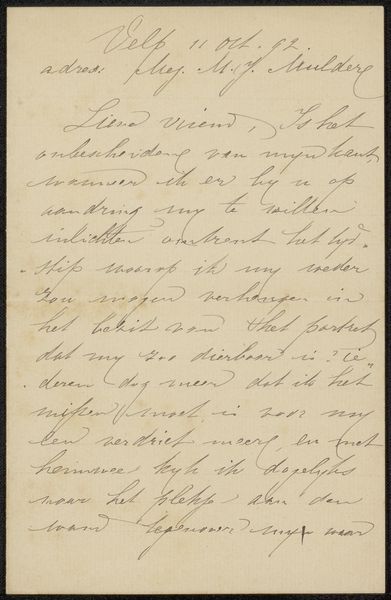 Velp 11 Oct. 92.
adres: Mej. M. J. Mulder
Lieve vriend, Is het
onbescheiden van mijn kant,
wanneer ik er bij u op
aandring mij te willen
inlichten omtrent het tijd-
stip waarop ik mij weder
zou mogen verheugen in
het bezit van het portret
dat mij zoo dierbaar is? Ie
deren dag meer dat ik het
missen moet is voor mij
een verdriet meer, en met
heimwee kijk ik dagelijks
naar het plekje aan den
wand tegenover mij waar